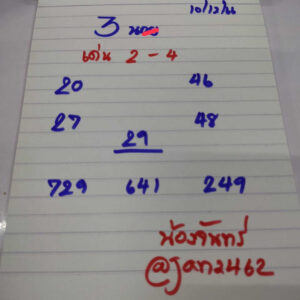 10/12/62
3 นอย
เด่น 2 - 4
20 46
27 48
29
729 641 249
น้องจันทร์
@Jan2462